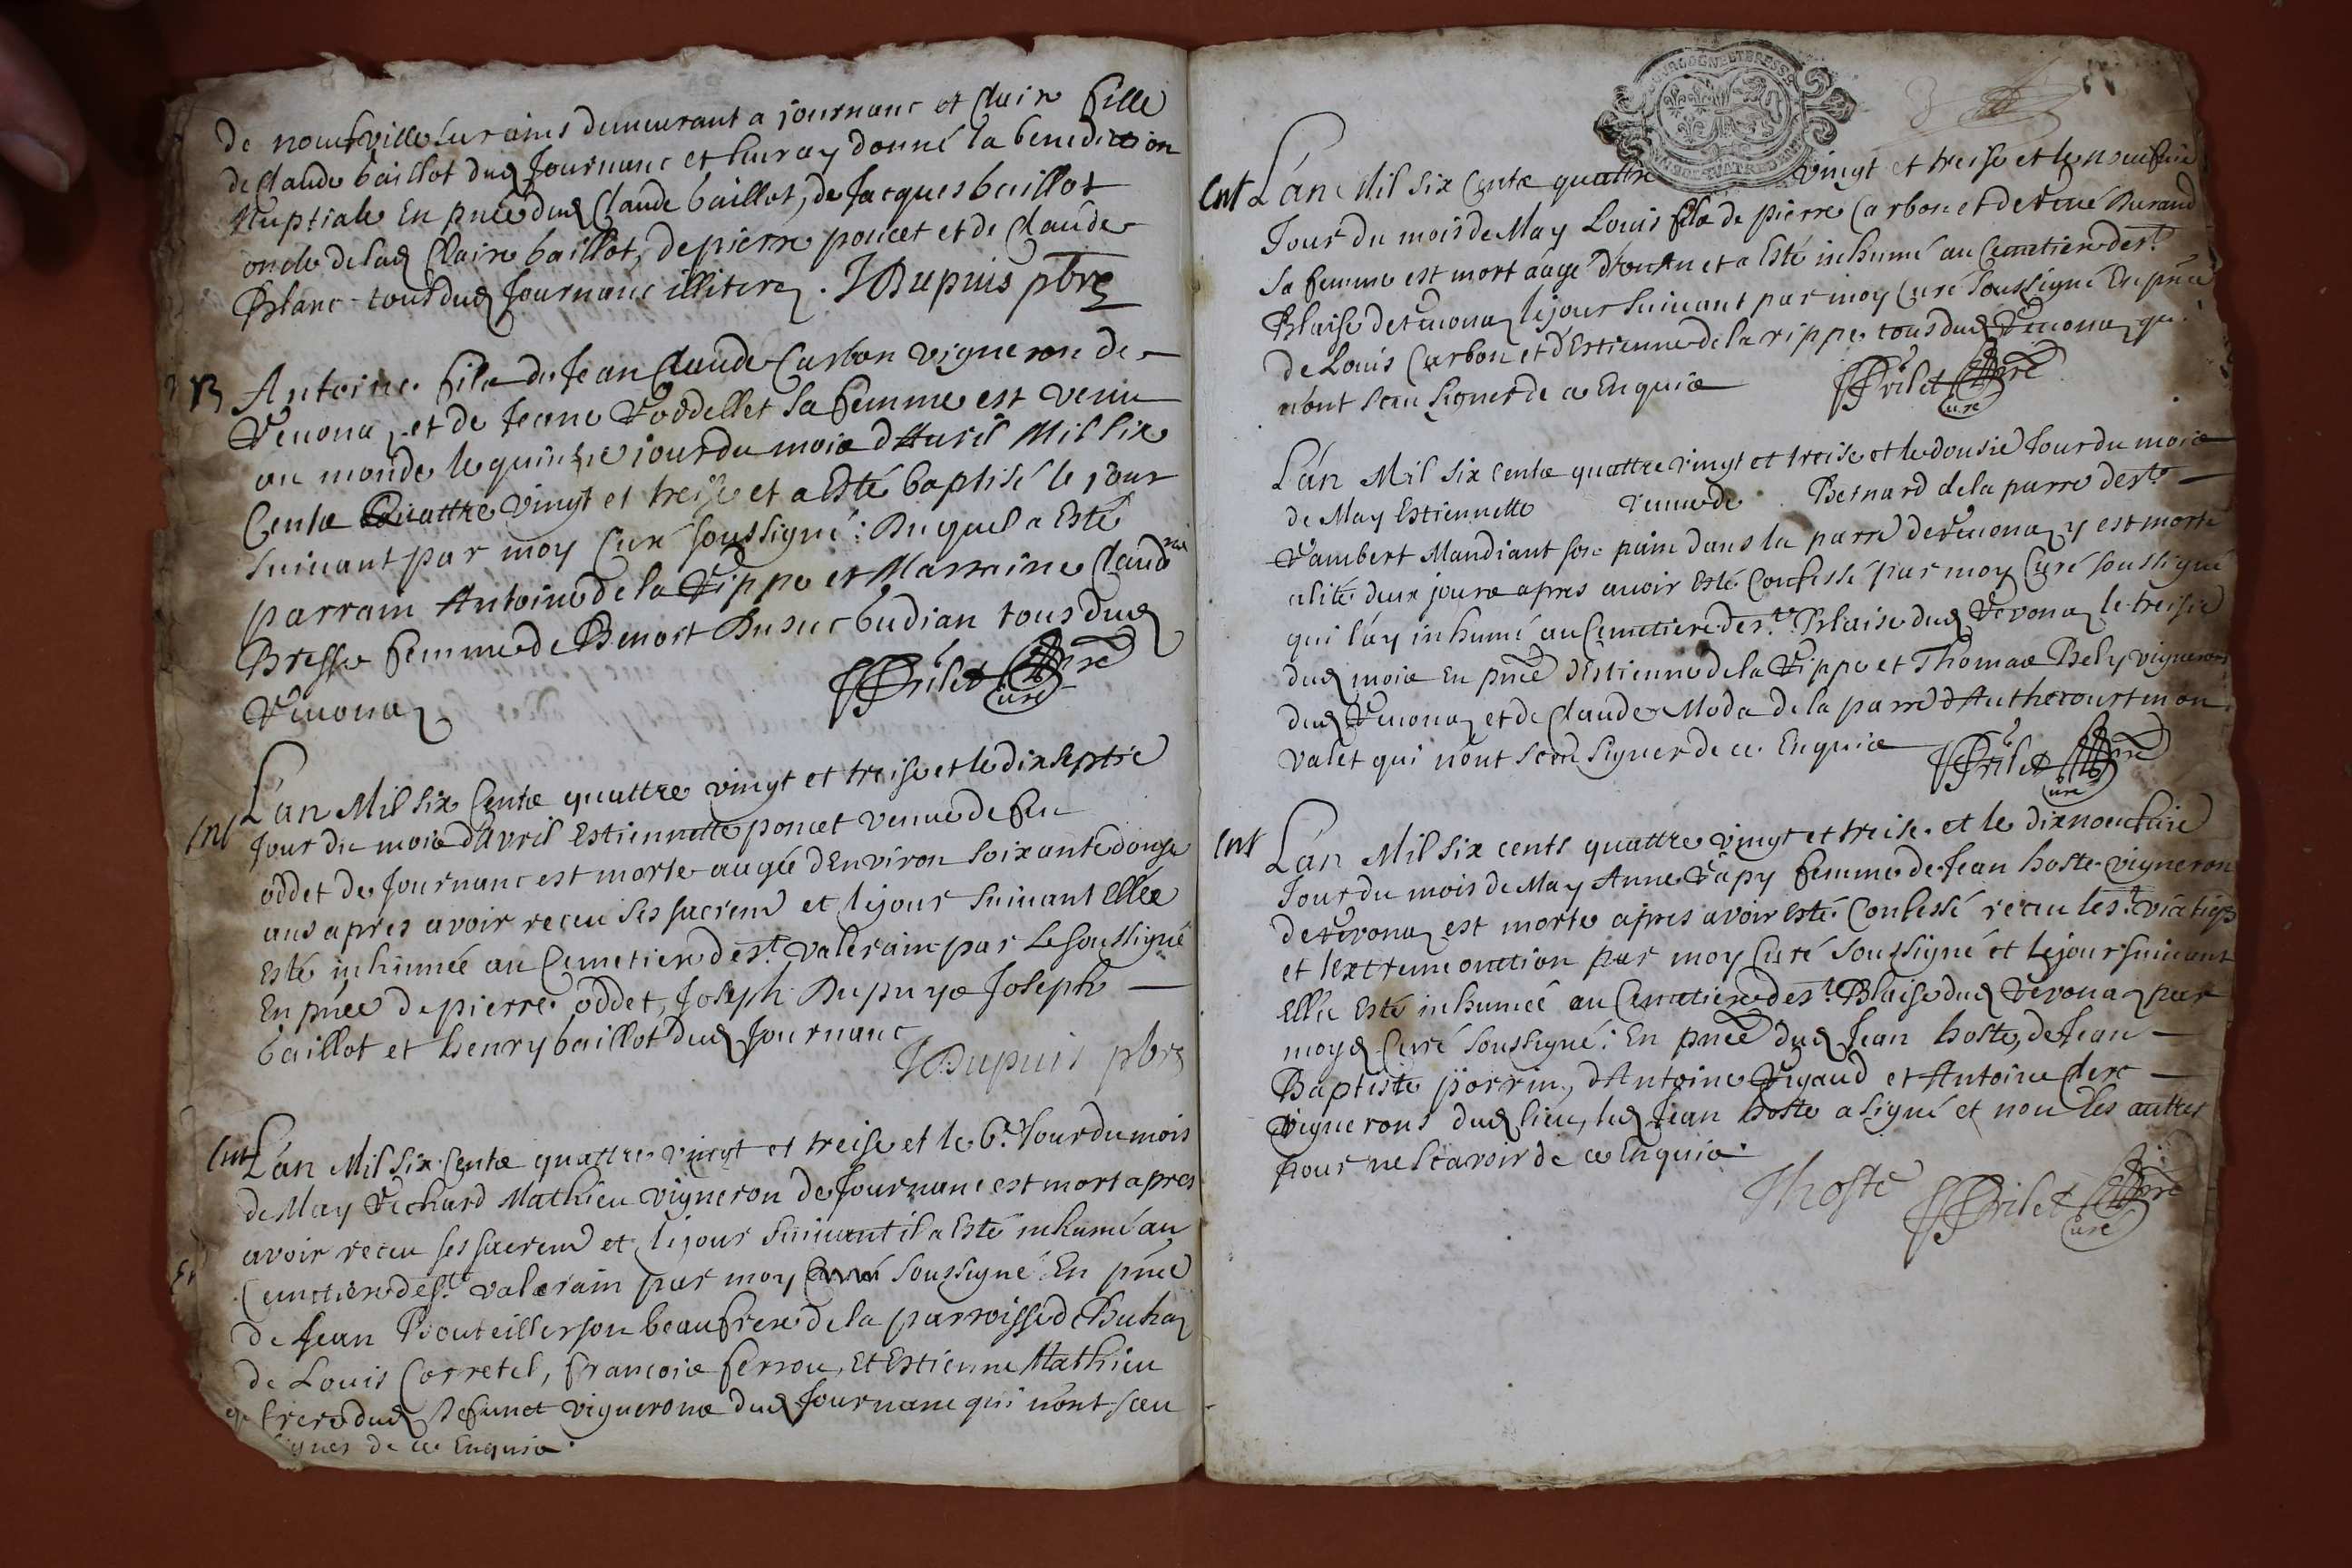 de neufville sur ains demeurant a journanc et Claire fille
de Claude baillot dud Journanc et leur ay donné la benediction
Nuptiale En pnce dud Claude baillot, de Jacques baillot
oncle de lad Claire baillot, de pierre poncet et de Claude
Blanc tous dud Journanc illiterez. JDupuis pbre
B Antoine fils de Jean Claude Carbon vigneron de
Reuonaz et de Jeanne Roddellet sa femme est venu
au monde le quinzie jour du mois d'Auril Mil six
Cents Quattre vingt et treise et a Esté baptisé le jour
suiuant par moy Curé soussigné: Duquel a Esté
parrain Antoine de la Rippe et Marraine Claudine
Bresse femme de Benoit Dusuc budian tous dud
Reuonaz
JFrilet pbre
Curé
Ent L'an Mil six Cents quattre vingt et treise et le dix septie
Jour du mois d'Avril Estiennette poncet veuue de feu
oddet de Journanc est morte augée d'Environ soixante douze
ans apres avoir receu ses sacremt et le jour suiuant Ell'a
Esté inhumée au Cemetiere de st. valerain par Le soussigné
En pnce de pierre oddet, Joseph Dupuys Joseph
baillot et henry baillot dud Journanc
JDupuis pbre
Ent L'an Mil six Cents quattre vingt et treise et le 6e. Jour du mois
de May Richard Mathieu vigneron de Journanc est mort apres
avoir receu ses sacremt et le jour suiuant il a Esté inhumé au
Cemetiere de st. valerain par moy Curé soussigné En pnce
de Jean Bouteiller son beaufrere de la parroisse de Buhaz
de Louis Corretel, francois ferrou, Et Estienne Mathieu
frere dud defunct vignerons dud Journanc qui n'ont sceu
signer de ce Enquis.
BOURGOGNE ET BRESSE
Ent L'an Mil six Cents quattre vingt et treise et le neufuie
Jour du mois de May Louis fils de pierre Carbon et de René Durand
sa femme est mort áagé d'un An et a Esté inhumé au Cemetiere de st.
Blaise de Reuonaz le jour suiuant par moy Curé soussigné En pnce
de Louis Carbon et d'Estienne de la rippe tous dud Reuonaz qui
n'ont sceu signer de ce Enquis
JFrilet pbre
Curé
L'an Mil six Cents quattre vingt et treise et le dousie Jour du mois
de May Estiennette veuue de Bernard de la parre de st
Rambert Mandiant son pain dans la parre de Reuonaz y est morte
alité deux jours apres auoir Esté Confessé par moy Curé soussigné
qui l'ay inhumé au Cemetiere de st. Blaise dud Revonaz le treisie
dud mois En pnce d'Estienne de la Rippe et Thomas Bely vignerons
dud Reuonaz et de Claude Moda de la parre d'Authecourt mon
valet qui n'ont sceu signer de ce Enquis
JFrilet pbre
Curé
Ent L'an Mil six cents quattre vingt et treise et le dixneufuie
Jour du mois de May Anne Rapy femme de Jean hoste vigneron
de Revonaz est morte apres avoir esté Confessé receu le st. viatique
et l'extreme onction par moy Curé soussigné et le jour suiuant
Ell'a Esté inhumée au Cemetiere de st. Blaise dud Revonaz par
moyd Curé soussigné: En pnce dud Jean hoste, de Jean
Baptiste porrin, d'Antoine Rigaud et Antoine clerc
vignerons dud lieu, led Jean hoste a signé et non les autres
pour ne scavoir de ce Enquis.
Jhoste JFrilet pbre
Curé